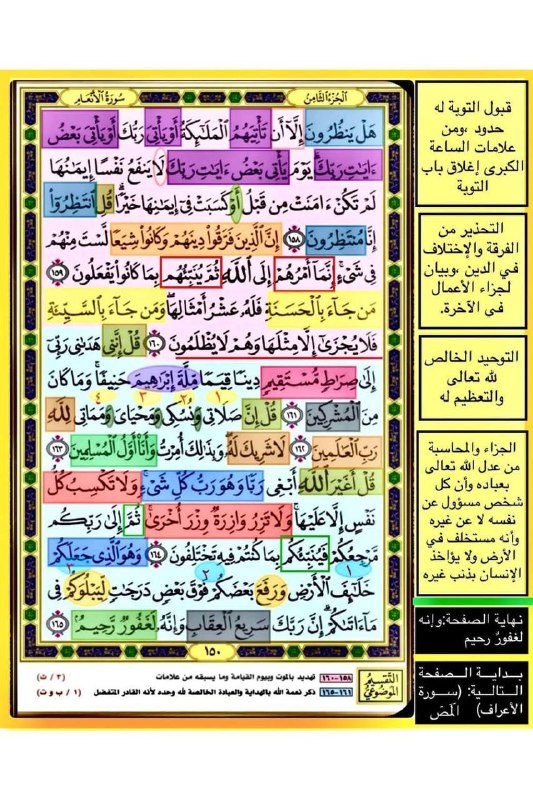 سُورَةُ الأَنْعَامِ
الجُزْءُ الثَّامِنُ
هَلْ يَنظُرُونَ إِلَّآ أَن تَأْتِيَهُمُ ٱلْمَلَـٰٓئِكَةُ أَوْ يَأْتِىَ رَبُّكَ أَوْ يَأْتِىَ بَعْضُ
ءَايَـٰتِ رَبِّكَ ۗ يَوْمَ يَأْتِى بَعْضُ ءَايَـٰتِ رَبِّكَ لَا يَنفَعُ نَفْسًا إِيمَـٰنُهَا
لَمْ تَكُنْ ءَامَنَتْ مِن قَبْلُ أَوْ كَسَبَتْ فِىٓ إِيمَـٰنِهَا خَيْرًا ۗ قُلِ ٱنتَظِرُوٓا۟
إِنَّا مُنتَظِرُونَ ١٥٨ إِنَّ ٱلَّذِينَ فَرَّقُوا۟ دِينَهُمْ وَكَانُوا۟ شِيَعًا لَّسْتَ مِنْهُمْ
فِى شَىْءٍ ۚ إِنَّمَآ أَمْرُهُمْ إِلَى ٱللَّهِ ثُمَّ يُنَبِّئُهُم بِمَا كَانُوا۟ يَفْعَلُونَ ١٥٩
مَن جَآءَ بِٱلْحَسَنَةِ فَلَهُۥ عَشْرُ أَمْثَالِهَا ۖ وَمَن جَآءَ بِٱلسَّيِّئَةِ
فَلَا يُجْزَىٰٓ إِلَّا مِثْلَهَا وَهُمْ لَا يُظْلَمُونَ ١٦٠ قُلْ إِنَّنِى هَدَىٰنِى رَبِّىٓ
إِلَىٰ صِرَٰطٍ مُّسْتَقِيمٍ دِينًا قِيَمًا مِّلَّةَ إِبْرَٰهِيمَ حَنِيفًا ۚ وَمَا كَانَ
١ ٢ ٣ ٤
مِنَ ٱلْمُشْرِكِينَ ١٦١ قُلْ إِنَّ صَلَاتِى وَنُسُكِى وَمَحْيَاىَ وَمَمَاتِى لِلَّهِ
رَبِّ ٱلْعَـٰلَمِينَ ١٦٢ لَا شَرِيكَ لَهُۥ ۖ وَبِذَٰلِكَ أُمِرْتُ وَأَنَا۠ أَوَّلُ ٱلْمُسْلِمِينَ ١٦٣
قُلْ أَغَيْرَ ٱللَّهِ أَبْغِى رَبًّا وَهُوَ رَبُّ كُلِّ شَىْءٍ ۚ وَلَا تَكْسِبُ كُلُّ
نَفْسٍ إِلَّا عَلَيْهَا ۚ وَلَا تَزِرُ وَازِرَةٌ وِزْرَ أُخْرَىٰ ۚ ثُمَّ إِلَىٰ رَبِّكُم
مَّرْجِعُكُمْ فَيُنَبِّئُكُم بِمَا كُنتُمْ فِيهِ تَخْتَلِفُونَ ١٦٤ وَهُوَ ٱلَّذِى جَعَلَكُمْ
١ ٢ ٣
خَلَـٰٓئِفَ ٱلْأَرْضِ وَرَفَعَ بَعْضَكُمْ فَوْقَ بَعْضٍ دَرَجَـٰتٍ لِّيَبْلُوَكُمْ فِى
مَآ ءَاتَىٰكُمْ ۗ إِنَّ رَبَّكَ سَرِيعُ ٱلْعِقَابِ وَإِنَّهُۥ لَغَفُورٌ رَّحِيمٌۢ ١٦٥
١٥٠
التَّقْسِيمُ المَوْضُوعِيُّ
١٥٨-١٦٠ تهديد بالموت وبيوم القيامة وما يسبقه من علامات (٣ / ت)
١٦١-١٦٥ ذكر نعمة الله بالهداية والعبادة الخالصة لله وحده لأنه القادر المتفضل (١ / ب و ت)
قبول التوبة له
حدود ،ومن
علامات الساعة
الكبرى إغلاق باب
التوبة
التحذير من
الفرقة والإختلاف
في الدين ،وبيان
لجزاء الأعمال
فى الآخرة.
التوحيد الخالص
لله تعالى
والتعظيم له
الجزاء والمحاسبة
من عدل الله تعالى
بعباده وأن كل
شخص مسؤول عن
نفسه لا عن غيره
وأنه مستخلف في
الأرض ولا يؤاخذ
الإنسان بذنب غيره
نهاية الصفحة:وإنه
لغفورٌ رحيم
بداية الصفحة
التالية: (سورة
الأعراف) الٓمٓصٓ